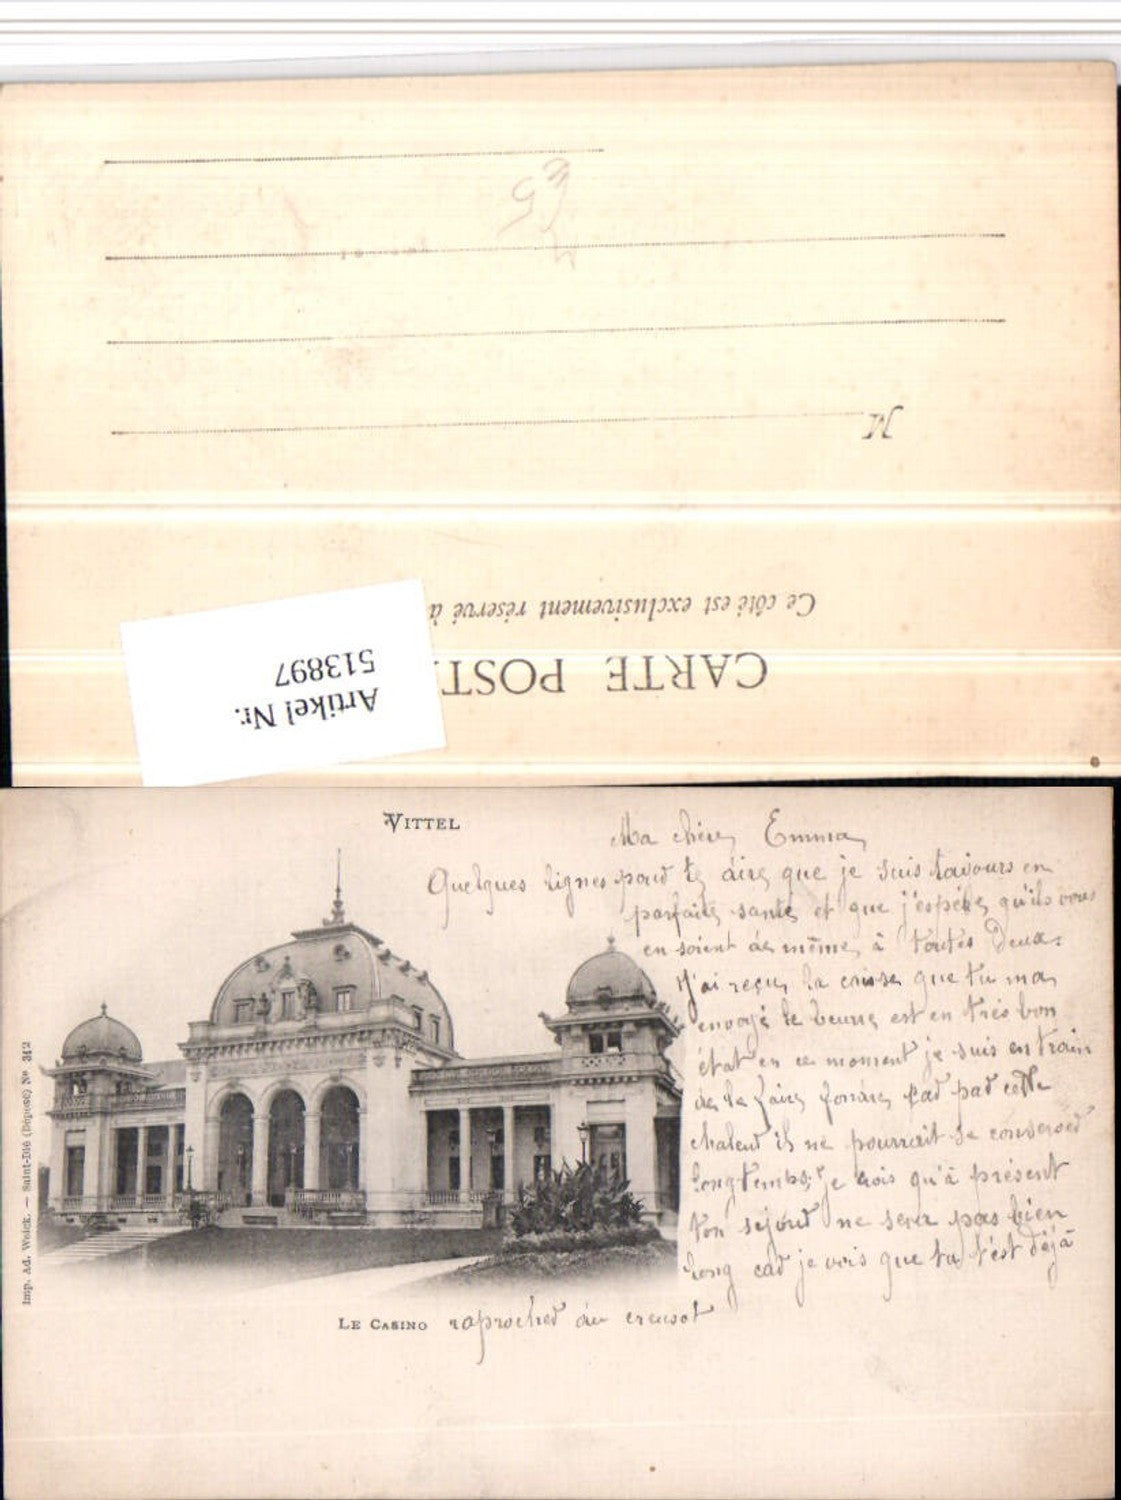 CARTE POST
Ce côté est exclusivement réservé à
M
53
Artikel Nr.
513897
VITTEL
Ma chère Emma
Quelques lignes pour te dire que je suis toujours en
parfaite santé et que j'espère qu'ils vous
en soient de même à toutes Deux.
J'ai reçu la caisse que tu ma
envoyé le beurre est en très bon
état en ce moment je suis en train
de le faire fondre car par cette
chaleur il ne pourrait se conserver
longtemps; je vois qu'à présent
ton sejour ne sera pas bien
long car je vois que tu t'est déjà
raprocher du creusot
LE CASINO
Imp. Ad. Weick. — Saint-Dié (Déposé) No 312